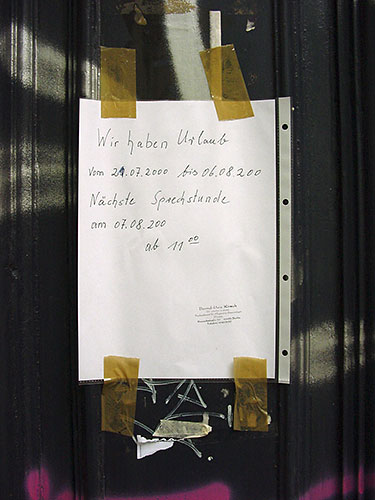 Wir haben Urlaub
vom 21.07.2000 bis 06.08.200
Nächste Sprechstunde
am 07.08.200
ab 11 00